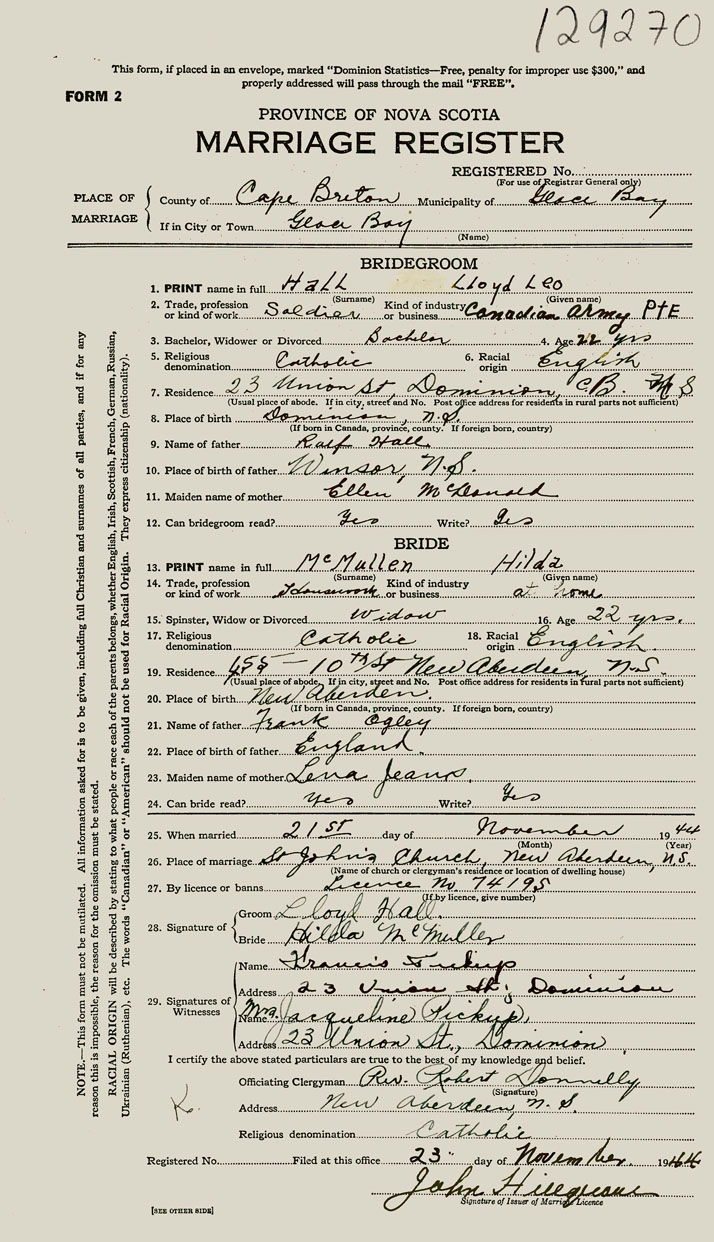 129270
This form, if placed in an envelope, marked "Dominion Statistics—Free, penalty for improper use $300," and
properly addressed will pass through the mail "FREE".
FORM 2
PROVINCE OF NOVA SCOTIA
MARRIAGE REGISTER
REGISTERED No.
(For use of Registrar General only)
PLACE OF MARRIAGE
County of Cape Breton Municipality of Glace Bay
If in City or Town Glace Bay
(Name)
BRIDEGROOM
1. PRINT name in full Hall Lloyd Leo
(Surname) (Given name)
2. Trade, profession or kind of work Soldier Kind of industry or business Canadian Army PtE
3. Bachelor, Widower or Divorced Bachelor 4. Age 22 yrs
5. Religious denomination Catholic 6. Racial origin English
7. Residence 23 Union St, Dominion, C.B. N S
(Usual place of abode. If in city, street and No. Post office address for residents in rural parts not sufficient)
8. Place of birth Dominion, N.S.
(If born in Canada, province, county. If foreign born, country)
9. Name of father Ralf Hall
10. Place of birth of father Winsor, N.S.
11. Maiden name of mother Ellen McDonald
12. Can bridegroom read? Yes Write? Yes
BRIDE
13. PRINT name in full McMullen Hilda
(Surname) (Given name)
14. Trade, profession or kind of work Housework Kind of industry or business at home
15. Spinster, Widow or Divorced Widow 16. Age 22 yrs.
17. Religious denomination Catholic 18. Racial origin English.
19. Residence 455 — 10th St New Aberdeen, N.S.
(Usual place of abode, If in city, street and No. Post office address for residents in rural parts not sufficient)
20. Place of birth New Aberden.
(If born in Canada, province, county. If foreign born, country)
21. Name of father Frank Ogley
22. Place of birth of father England.
23. Maiden name of mother Lena Jeans.
24. Can bride read? Yes Write? Yes
25. When married 21st day of November 1944
(Month) (Year)
26. Place of marriage St John's Church, New Aberdeen, N.S.
(Name of church or clergyman's residence or location of dwelling house)
27. By licence or banns Licence No 74195
(If by licence, give number)
28. Signature of
Groom Lloyd Hall.
Bride Hilda McMullen
29. Signatures of Witnesses
Name Francis
Address 23 Union St; Dominion
Name Mrs. Jacqueline Pickup,
Address 23 Union St., Dominion
I certify the above stated particulars are true to the best of my knowledge and belief.
Officiating Clergyman Rev. Robert Donnelly
(Signature)
Address New Aberdeen, N.S.
K.
Religious denomination Catholic
Registered No. Filed at this office 23" day of November 1944
John
Signature of Issuer of Marriage Licence
[SEE OTHER SIDE]
NOTE.—This form must not be mutilated. All information asked for is to be given, including full Christian and surnames of all parties, and if for any
reason this is impossible, the reason for the omission must be stated.
RACIAL ORIGIN will be described by stating to what people or race each of the parents belongs, whether English, Irish, Scottish, French, German, Russian,
Ukrainian (Ruthenian), etc. The words "Canadian" or "American" should not be used for Racial Origin. They express citizenship (nationality).